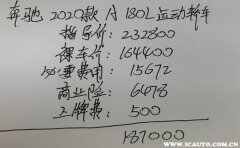 奔驰2020款A180L运动轿车
指导价=232800
裸车价=164400
必要费用=15672
商业险=6478
上牌费=500
187000
WWW.5CAUTO.COM.CN